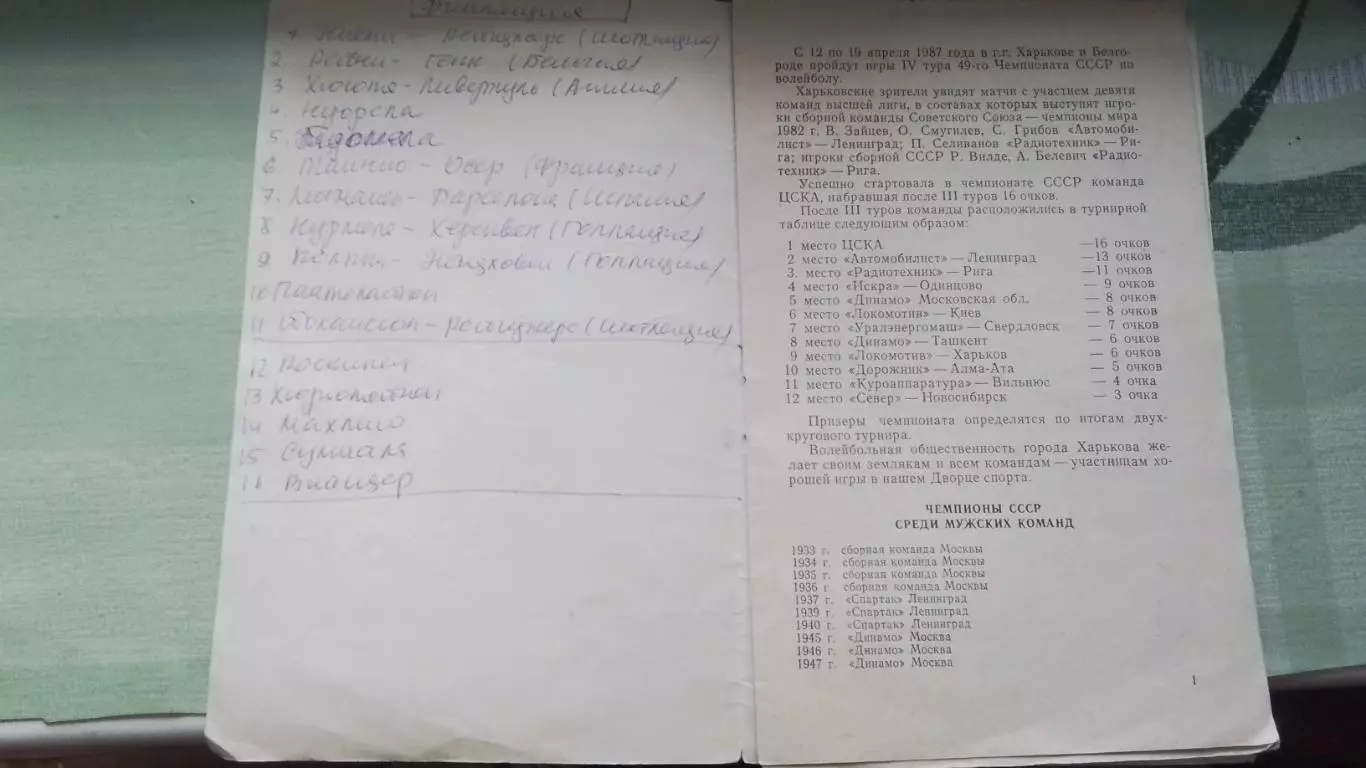 Финляндия
1. – Рейнджерс (Шотландия)
2. – Генк (Бельгия)
3 Хююпия – Ливерпуль (Англия)
4.
5.
6. Тайнио – Осер (Франция)
7. Литманен – Барселона (Испания)
8 Нурмела – Херенвен (Голландия)
9 – Эйндховен (Голландия)
10 Паателайнен
11 Йоханссон – Рейнджерс (Шотландия)
12
13
14
15
16
С 12 по 19 апреля 1987 года в г.г. Харькове и Белго-
роде пройдут игры IV тура 49-го Чемпионата СССР по
волейболу.
Харьковские зрители увидят матчи с участием девяти
команд высшей лиги, в составах которых выступят игро-
ки сборной команды Советского Союза — чемпионы мира
1982 г. В. Зайцев, О. Смугилев, С. Грибов «Автомоби-
лист» — Ленинград; П. Селиванов «Радиотехник» — Ри-
га; игроки сборной СССР Р. Вилде, А. Белевич «Радио-
техник» — Рига.
Успешно стартовала в чемпионате СССР команда
ЦСКА, набравшая после III туров 16 очков.
После III туров команды расположились в турнирной
таблице следующим образом:
1 место ЦСКА —16 очков
2 место «Автомобилист» — Ленинград —13 очков
3. место «Радиотехник» — Рига —11 очков
4 место «Искра» — Одинцово — 9 очков
5 место «Динамо» Московская обл. — 8 очков
6 место «Локомотив» — Киев — 8 очков
7 место «Уралэнергомаш» — Свердловск — 7 очков
8 место «Динамо» — Ташкент — 6 очков
9 место «Локомотив» — Харьков — 6 очков
10 место «Дорожник» — Алма-Ата — 5 очков
11 место «Куроаппаратура» — Вильнюс — 4 очка
12 место «Север» — Новосибирск — 3 очка
Призеры чемпионата определятся по итогам двух-
кругового турнира.
Волейбольная общественность города Харькова же-
лает своим землякам и всем командам — участницам хо-
рошей игры в нашем Дворце спорта.
ЧЕМПИОНЫ СССР
СРЕДИ МУЖСКИХ КОМАНД
1933 г. сборная команда Москвы
1934 г. сборная команда Москвы
1935 г. сборная команда Москвы
1936 г. сборная команда Москвы
1937 г. «Спартак» Ленинград
1939 г. «Спартак» Ленинград
1940 г. «Спартак» Ленинград
1945 г. «Динамо» Москва
1946 г. «Динамо» Москва
1947 г. «Динамо» Москва
1